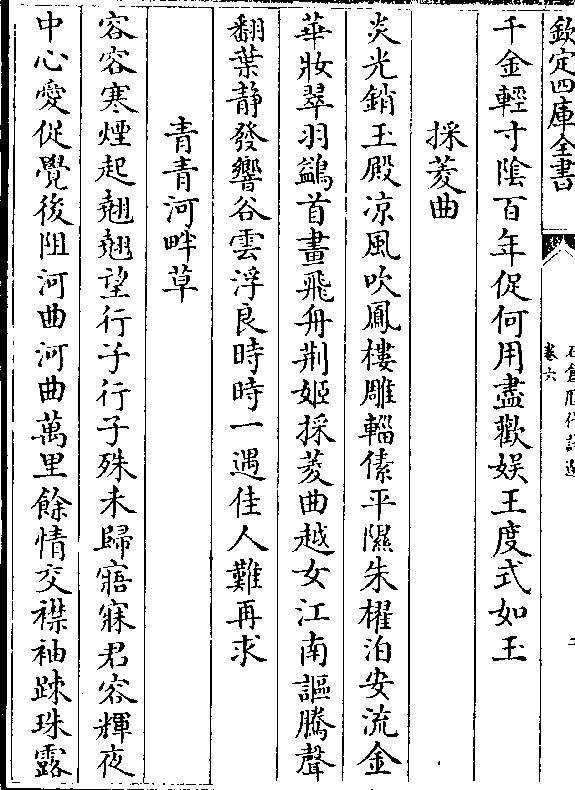 欽定四庫全書
石倉歷代詩選
卷六
千金輕寸陰百年促何用盡歡娱王度式如玉
採菱曲
炎光銷玉殿凉風吹鳳樓雕輜傃平隰朱櫂泊安流金
華妝翠羽鷁首畫飛舟荆姬採菱曲越女江南謳騰聲
翻葉静發響谷雲浮良時時一遇佳人難再求
青青河畔草
容容寒煙起翹翹望行子行子殊未歸寤寐君容輝夜
中心愛促覺後阻河曲河曲萬里餘情交襟袖踈珠露